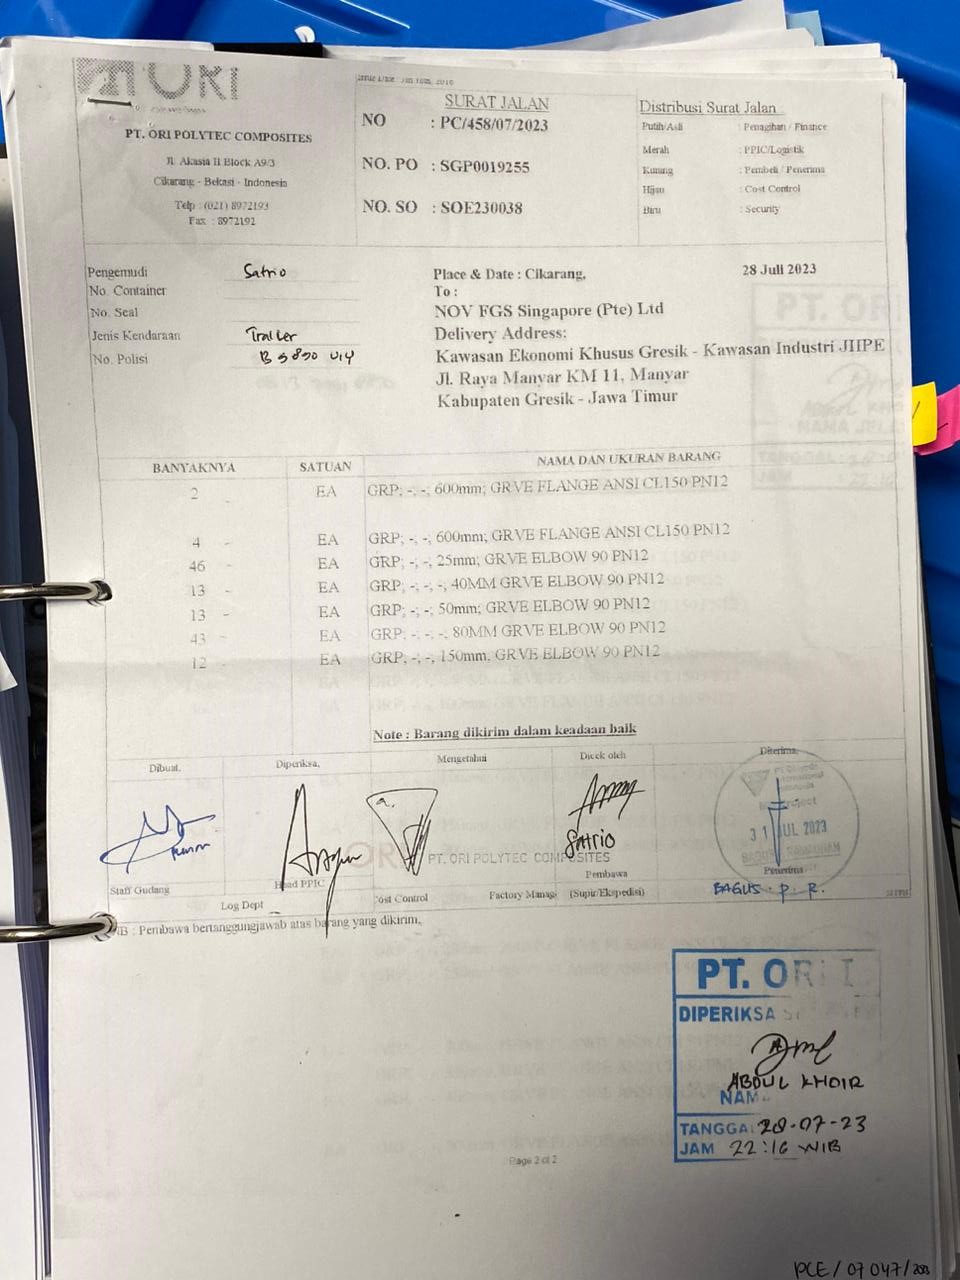 ORI
PT. ORI POLYTEC COMPOSITES
Jl. Akasia II Block A9/3
Cikarang - Bekasi - Indonesia
Telp : (021) 8972193
Fax : 8972192
SURAT JALAN
NO : PC/458/07/2023
NO. PO : SGP0019255
NO. SO : SOE230038
Distribusi Surat Jalan
Putih/Asli : Penagihan / Finance
Merah : PPIC/Logistik
Kuning : Pembeli / Penerima
Hijau : Cost Control
Biru : Security
Pengemudi Satrio
No. Container
No. Seal
Jenis Kendaraan Trailer
No. Polisi
Place & Date : Cikarang, 28 Juli 2023
To :
NOV FGS Singapore (Pte) Ltd
Delivery Address:
Kawasan Ekonomi Khusus Gresik - Kawasan Industri JIIPE
Jl. Raya Manyar KM 11, Manyar
Kabupaten Gresik - Jawa Timur
BANYAKNYA SATUAN NAMA DAN UKURAN BARANG
2 - EA GRP; -, -, 600mm; GRVE FLANGE ANSI CL150 PN12
4 - EA GRP; -, -, 600mm; GRVE FLANGE ANSI CL150 PN12
46 - EA GRP; -, -, 25mm; GRVE ELBOW 90 PN12
13 - EA GRP; -, -, 40MM GRVE ELBOW 90 PN12
13 - EA GRP; -, -, 50mm; GRVE ELBOW 90 PN12
43 - EA GRP; -, -, 80MM GRVE ELBOW 90 PN12
12 - EA GRP; -, -, 150mm; GRVE ELBOW 90 PN12
Note : Barang dikirim dalam keadaan baik
Dibuat, Diperiksa, Mengetahui Dicek oleh Diterima,
31 JUL 2023
Satrio
PT. ORI POLYTEC COMPOSITES
Pembawa
Penerima
Staff Gudang Head PPIC Cost Control Factory Manage (Supir/Ekspedisi) BAGUS. P. R.
Log Dept
NB : Pembawa bertanggungjawab atas barang yang dikirim.
PT. ORI
DIPERIKSA
ABDUL KHOIR
NAMA
TANGGAL 28-07-23
JAM 22:16 WIB
Page 2 of 2
PCE/07 047/2023